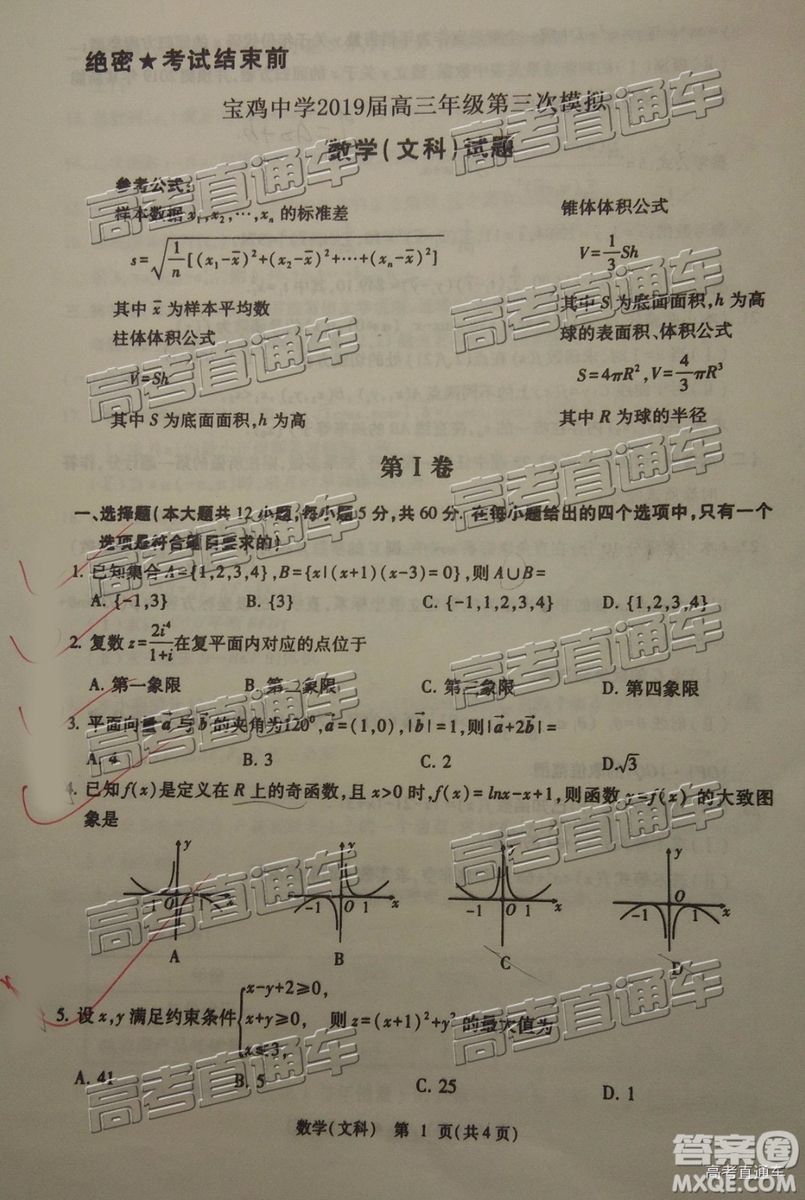 绝密★考试结束前
宝鸡中学2019届高三年级第三次模拟
数学(文科)试题
参考公式:
样本数据 x₁,x₂,…,xₙ 的标准差
锥体体积公式
s=√(1/n[(x₁-x̄)²+(x₂-x̄)²+…+(xₙ-x̄)²])
V=1/3Sh
其中 x̄ 为样本平均数
其中 S 为底面面积,h 为高
柱体体积公式
球的表面积、体积公式
V=Sh
S=4πR²,V=4/3πR³
其中 S 为底面面积,h 为高
其中 R 为球的半径
第 I 卷
一、选择题(本大题共 12 小题,每小题 5 分,共 60 分. 在每小题给出的四个选项中,只有一个
选项是符合题目要求的)
1. 已知集合 A={1,2,3,4},B={x|(x+1)(x-3)=0},则 A∪B=
A. {-1,3} B. {3} C. {-1,1,2,3,4} D. {1,2,3,4}
2. 复数 z=2i⁴/(1+i) 在复平面内对应的点位于
A. 第一象限 B. 第二象限 C. 第三象限 D. 第四象限
3. 平面向量 a⃗ 与 b⃗ 的夹角为120⁰,a⃗=(1,0),|b⃗|=1,则|a⃗+2b⃗|=
A. 4 B. 3 C. 2 D.√3
4. 已知 f(x) 是定义在 R 上的奇函数,且 x>0 时,f(x)=lnx-x+1,则函数 y=f(x) 的大致图
象是
y y y y
-1 O 1 x -1 O 1 x -1 O 1 x -1 O 1 x
A B C D
5. 设 x,y 满足约束条件{x-y+2≥0,
x+y≥0, 则 z=(x+1)²+y² 的最大值为
x≤3,
A. 41 B. 5 C. 25 D. 1
数学(文科) 第 1 页(共 4 页)
高考直通车
答案圈
高考直通车
MXQE.COM